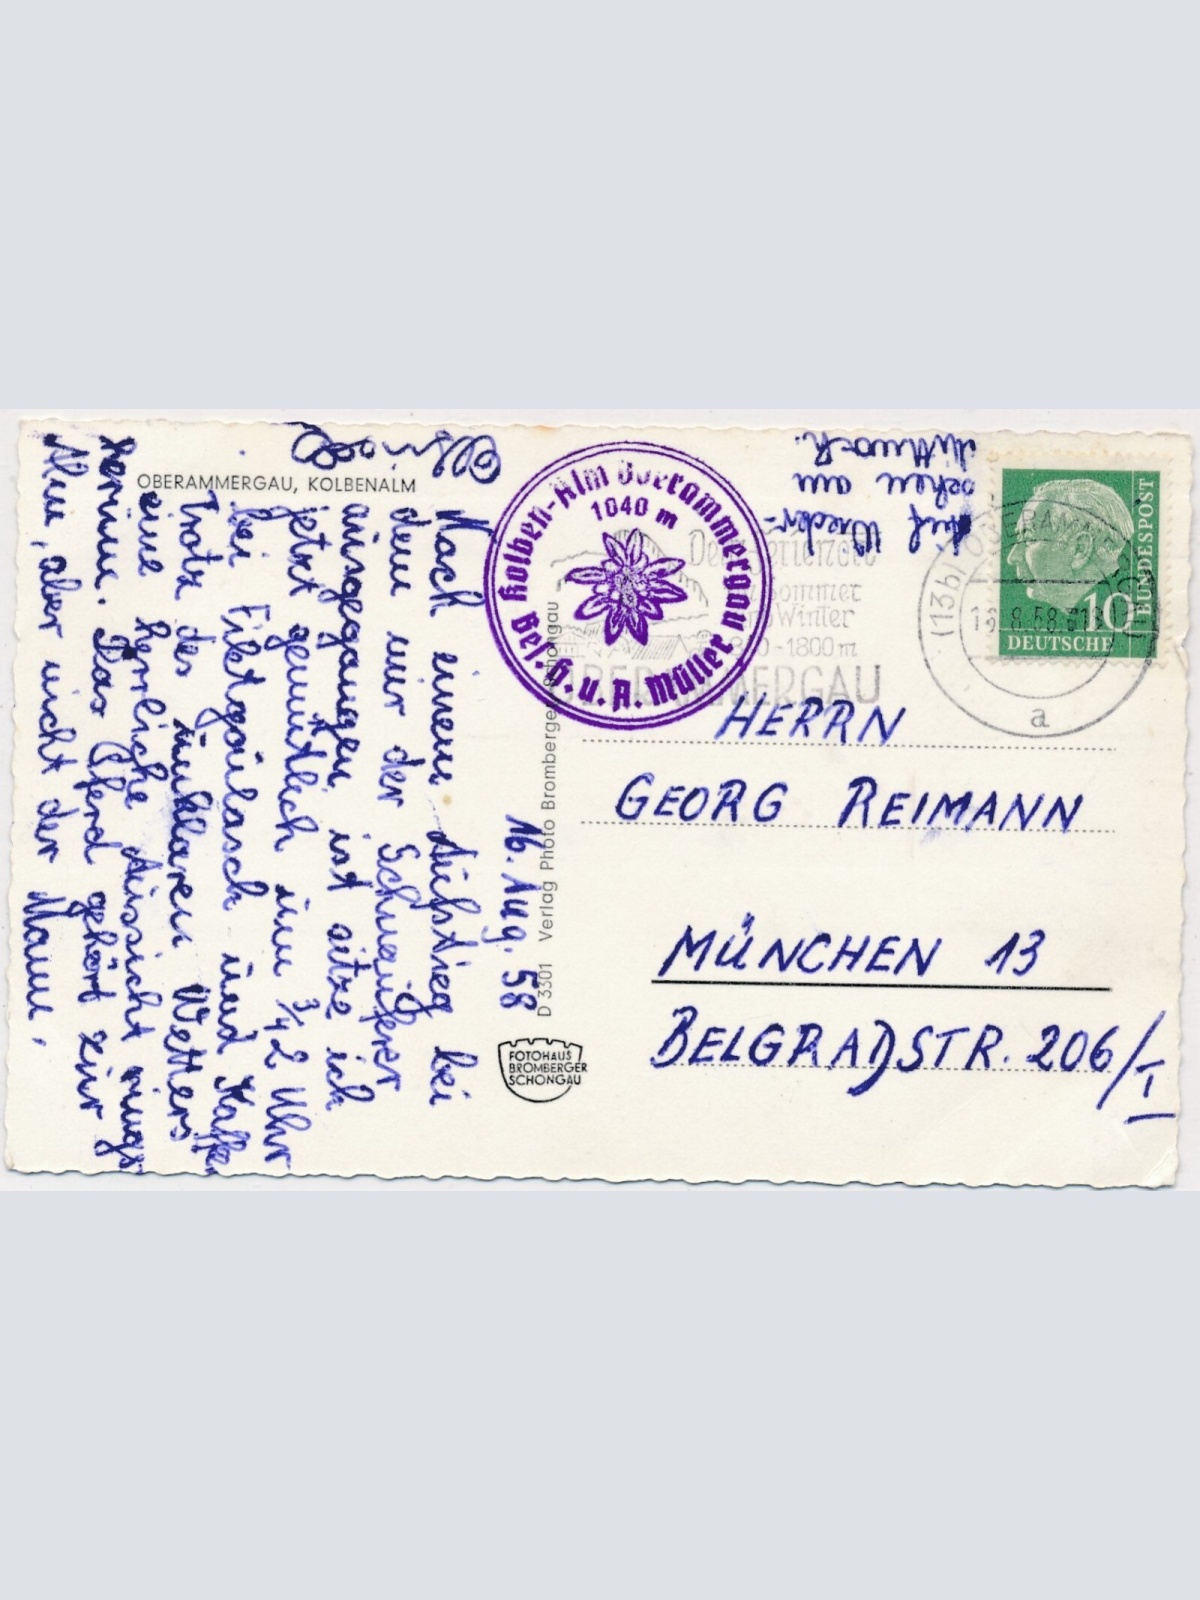 OBERAMMERGAU, KOLBENALM
16. Aug. 58
Nach einem Aufstieg bei
dem mir der Schnaufer
ausgegangen ist sitze ich
jetzt gemütlich um 3/4 2 Uhr
bei Filetgoulasch und Kaffee
Trotz des unklaren Wetters
eine herrliche Aussicht rings
herum. Das Pferd gehört zur
Alm, aber nicht der Mann.
Auf Wieder-
sehen am
Mittwoch.
Kolben-Alm Oberammergau
1040 m
Bes. H. u. A. Müller
Sommer
Winter
-1800 m
OBERAMMERGAU
(13b) OBERAMMERGAU
8.58
a
DEUTSCHE
BUNDESPOST
10
HERRN
GEORG REIMANN
MÜNCHEN 13
BELGRADSTR. 206/I
D 3301 Verlag Photo Bromberger, Schongau
FOTOHAUS
BROMBERGER
SCHONGAU